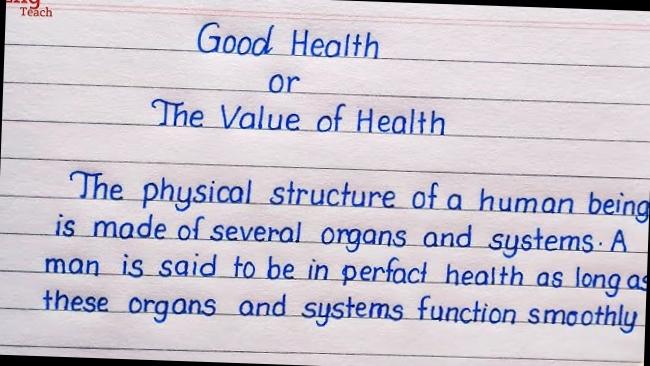 Teach
Good Health
or
The Value of Health
The physical structure of a human being
is made of several organs and systems. A
man is said to be in perfact health as long as
these organs and systems function smoothly